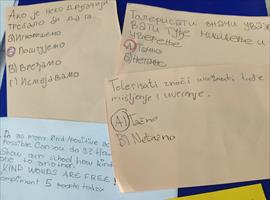 Ако је неко другачији
требало би да га...
А) Игноришемо
Б) Поштујемо
В) Вређамо
Г) Исмејавамо
Толерисати значи уважа-
вати туђе мишљење и
уверење.
А) Тачно
Б) Нетачно
Tolerisati znači uvažavati tuđe
mišljenje i uverenje.
A) Tačno
B) Netačno
Do as many kind/positive ac
possible. Can you do 5? How
Show our school how kind
one to another.
KIND WORDS ARE FREE!
compliment 5 people today